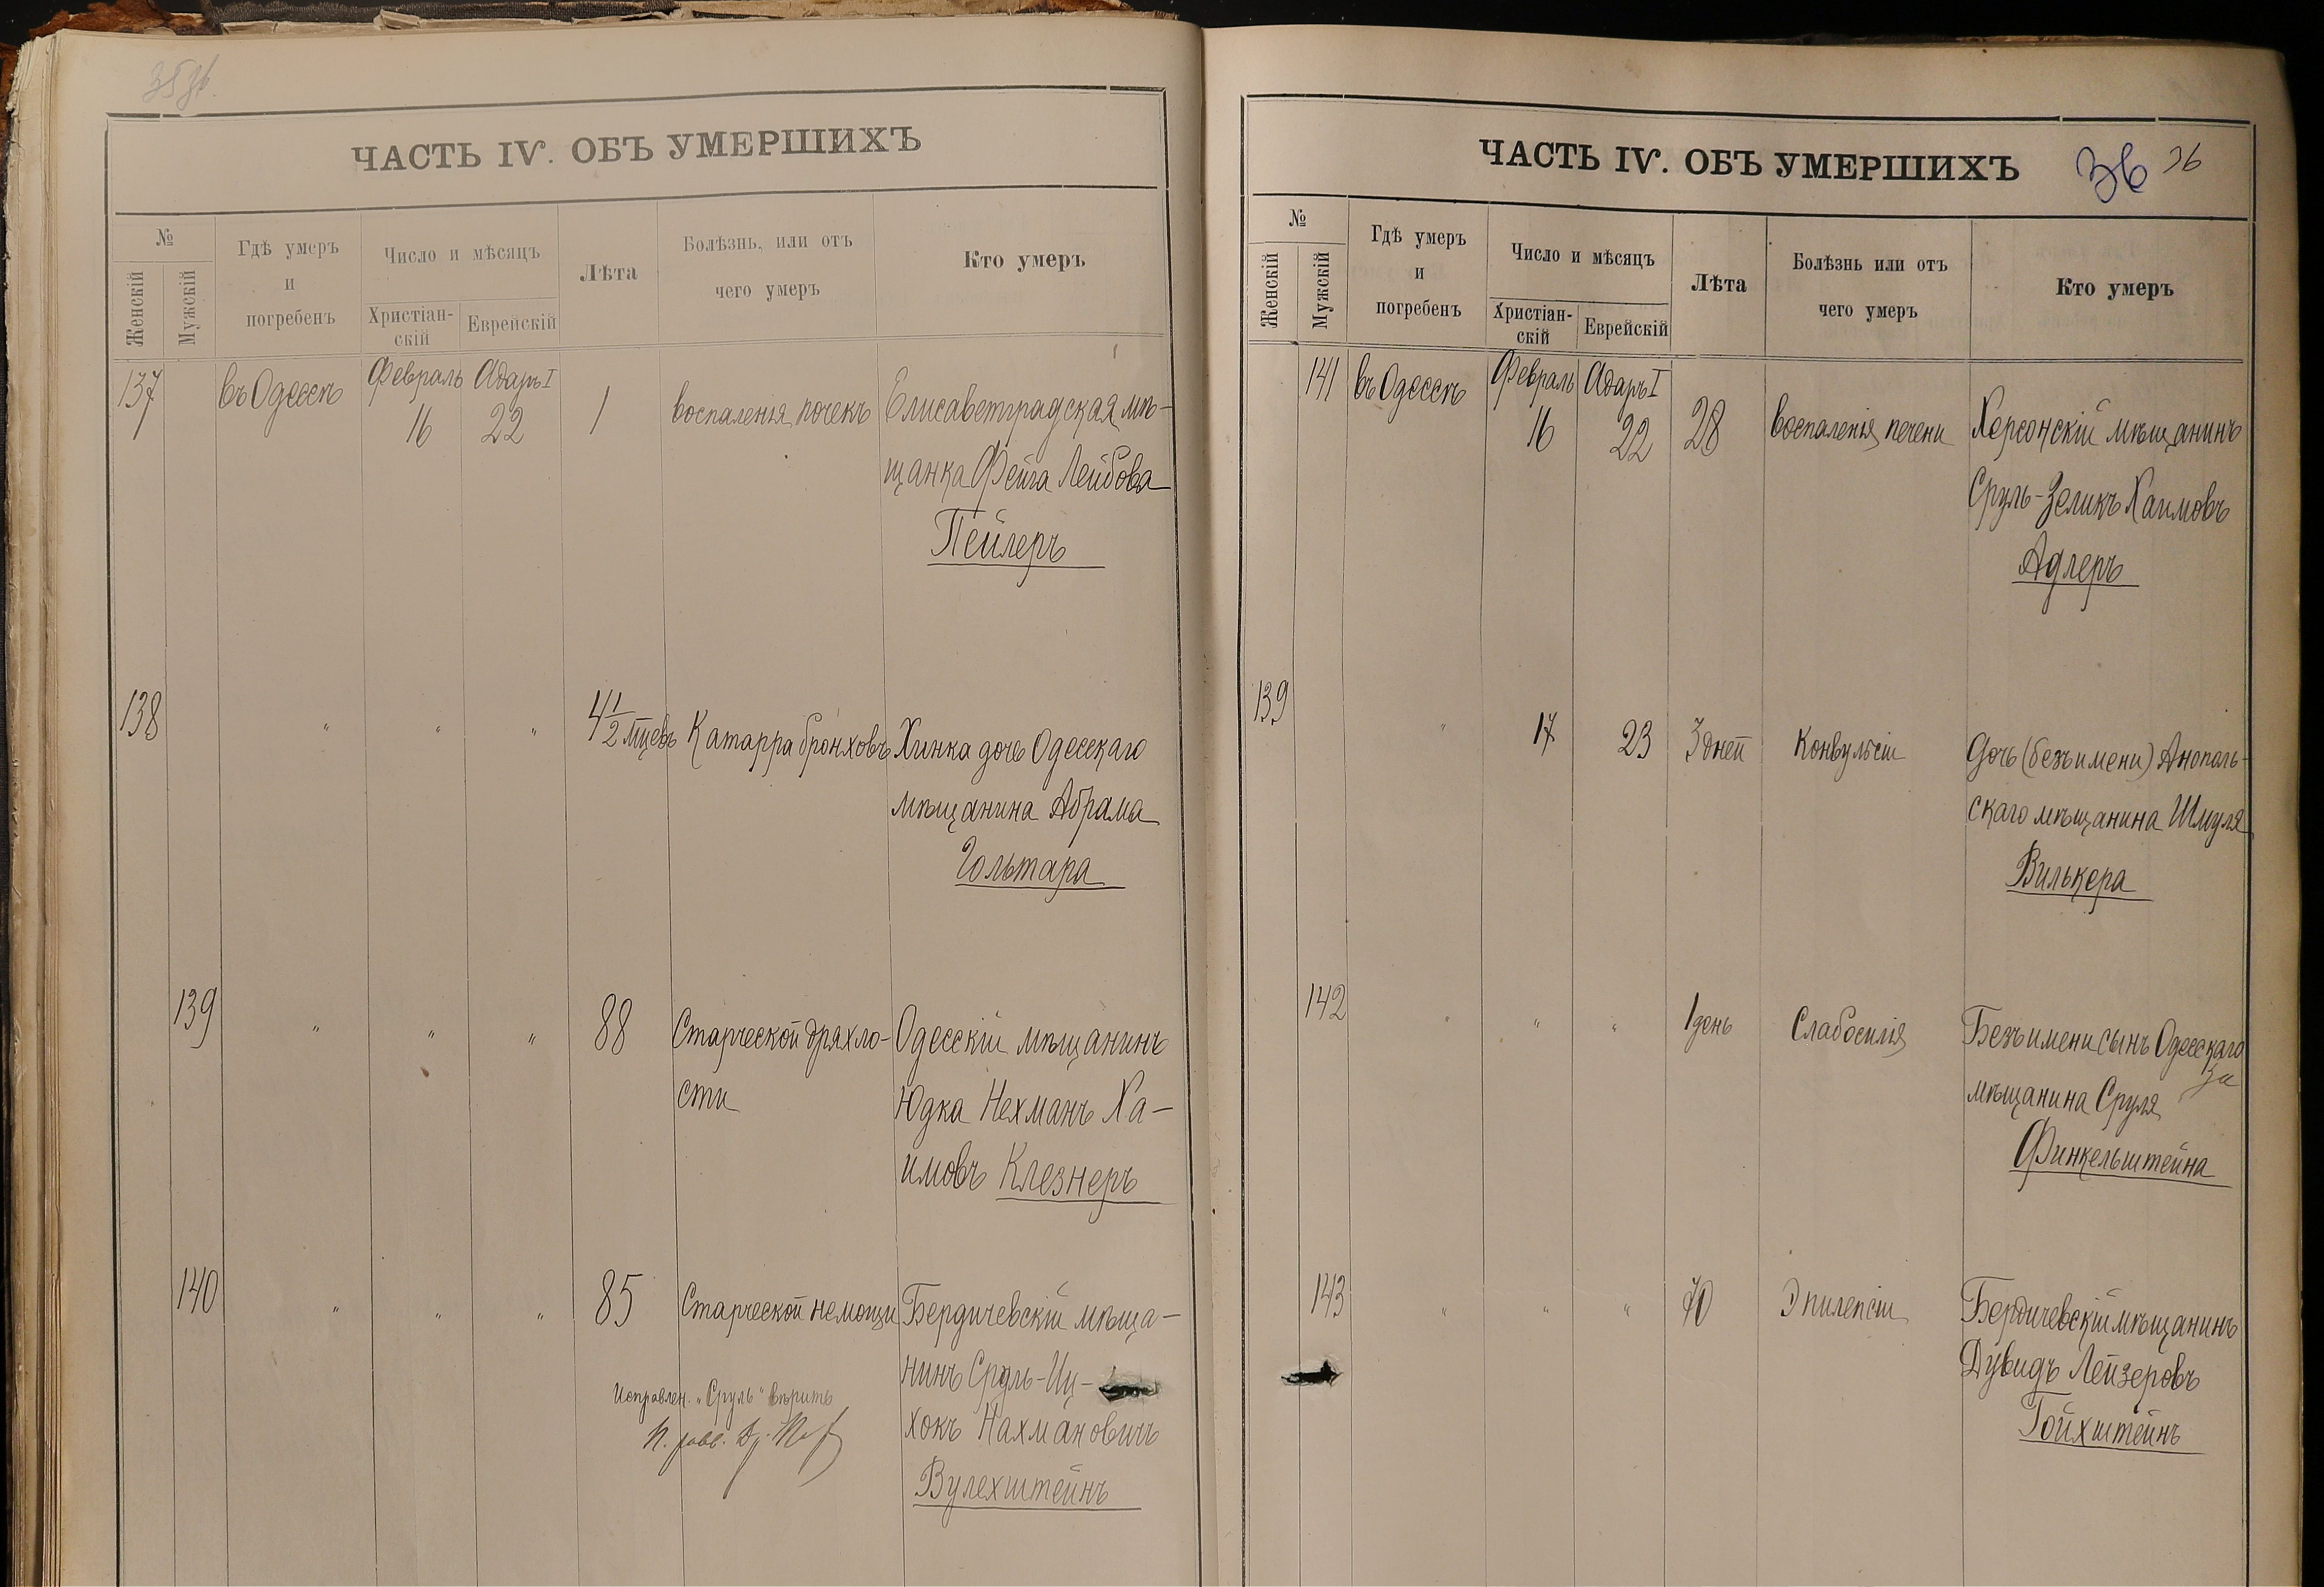 35 об.
ЧАСТЬ IV. ОБЪ УМЕРШИХЪ
№
Женскій
Мужскій
Гдѣ умеръ
и
погребенъ
Число и мѣсяцъ
Христіан-
скій
Еврейскій
Лѣта
Болѣзнь, или отъ
чего умеръ
Кто умеръ
137 въ Одессѣ Февраль Адаръ I
16 22 1 воспаленія почекъ Елисаветградская мѣ-
щанка Фейга Лейбова
Пейлеръ
138 " " " 4 1/2 мцевъ Катарра бронховъ Хинка дочь Одесскаго
мѣщанина Абрама
Гольтара
139 " " " 88 Старческой дряхло- Одесскій мѣщанинъ
сти Юдка Нехманъ Ха-
имовъ Клезнеръ
140 " " " 85 Старческой немощи Бердичевскій мѣща-
нинъ Сруль-Иц-
Исправлен. "Сруль" вѣрить
хокъ Нахмановичъ
Вулехштейнъ
ЧАСТЬ IV. ОБЪ УМЕРШИХЪ 36 36
№
Женскій
Мужскій
Гдѣ умеръ
и
погребенъ
Число и мѣсяцъ
Христіан-
скій
Еврейскій
Лѣта
Болѣзнь или отъ
чего умеръ
Кто умеръ
141 въ Одессѣ Февраль Адаръ I
16 22 28 воспаленія печени Херсонскій мѣщанинъ
Сруль-Зеликъ Хаимовъ
Адлеръ
139 " 17 23 3 дней Конвульсіи Дочь (безъ имени) Анополь-
скаго мѣщанина Шмуля
Вилькера
142 " " " 1 день Слабосилія Безъ имени сынъ Одесскаго
мѣщанина Сруля
Финкельштейна
143 " " " 70 Эпилепсіи Бердичевскій мѣщанинъ
Дувидъ Лейзеровъ
Гойхштейнъ